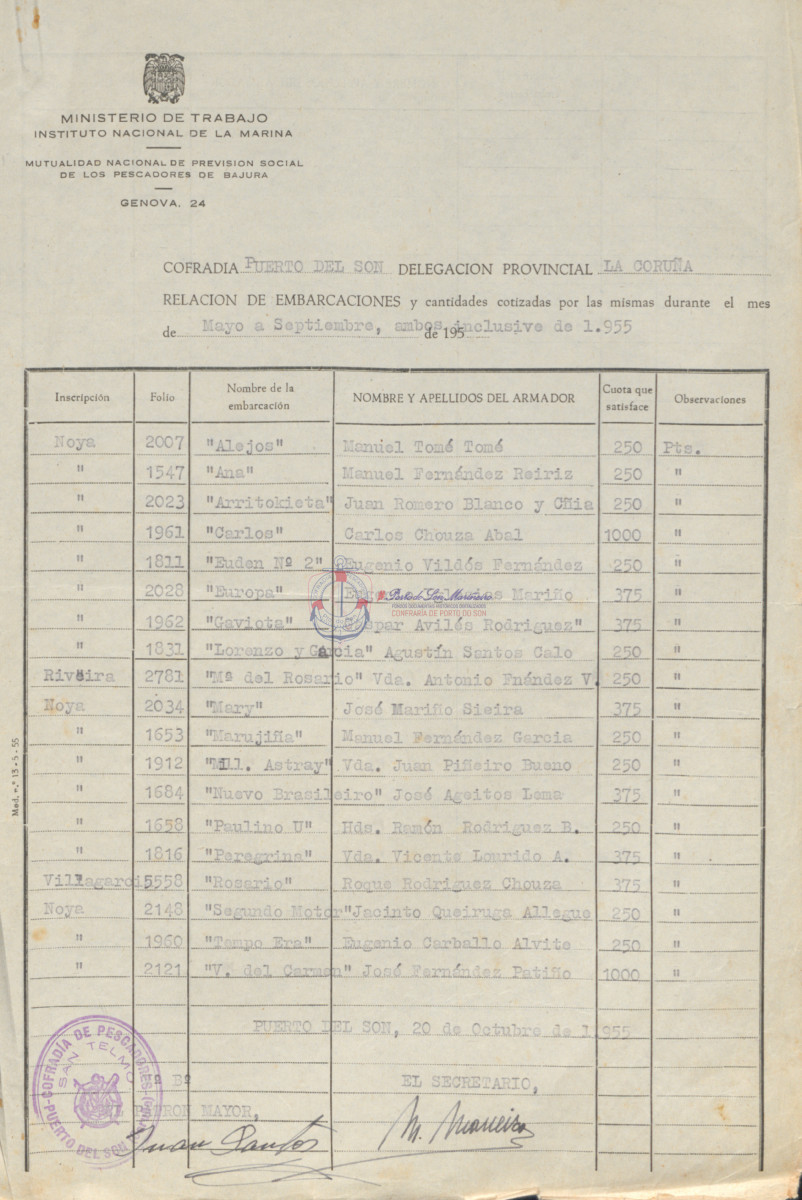 MINISTERIO DE TRABAJO
INSTITUTO NACIONAL DE LA MARINA
MUTUALIDAD NACIONAL DE PREVISION SOCIAL
DE LOS PESCADORES DE BAJURA
GENOVA, 24
COFRADIA PUERTO DEL SON DELEGACION PROVINCIAL LA CORUÑA
RELACION DE EMBARCACIONES y cantidades cotizadas por las mismas durante el mes
de Mayo a Septiembre, ambos inclusive de 1.955 de 195
Inscripción Folio Nombre de la embarcación NOMBRE Y APELLIDOS DEL ARMADOR Cuota que satisface Observaciones
Noya 2007 "Alejos" Manuel Tomé Tomé 250 Pts.
" 1547 "Ana" Manuel Fernández Reiriz 250 "
" 2023 "Arritokieta" Juan Romero Blanco y Cñia 250 "
" 1961 "Carlos" Carlos Chouza Abal 1000 "
" 1811 "Euden Nº 2" Eugenio Vildós Fernández 250 "
" 2028 "Europa" Mariño 375 "
" 1962 "Gaviota" Gaspar Avilés Rodriguez" 375 "
" 1831 "Lorenzo y Garcia" Agustín Santos Calo 250 "
Riveira 2781 "Mª del Rosario" Vda. Antonio Fnández V. 250 "
Noya 2034 "Mary" José Mariño Sieira 375 "
" 1653 "Marujiña" Manuel Fernández Garcia 250 "
" 1912 "Mll. Astray" Vda. Juan Piñeiro Bueno 250 "
" 1684 "Nuevo Brasileiro" José Ageitos Lema 375 "
" 1658 "Paulino U" Hds. Ramón Rodriguez B. 250 "
" 1816 "Peregrina" Vda. Vicente Lourido A. 375 "
Villagarci 5558 "Rosario" Roque Rodriguez Chouza 375 "
Noya 2148 "Segundo Motor" Jacinto Queiruga Allegue 250 "
" 1960 "Tempo Era" Eugenio Carballo Alvite 250 "
" 2121 "V. del Carmen" José Fernández Patiño 1000 "
Porto do Son Mariñeiro
CONFRARÍA DE PORTO DO SON
Mod. n.º 13 - 5 - 55
PUERTO DEL SON, 20 de Octubre de 1955
Vº Bº EL SECRETARIO,
EL PATRON MAYOR,
COFRADÍA DE PESCADORES
SAN TELMO
PUERTO DEL SON
Juan Santos